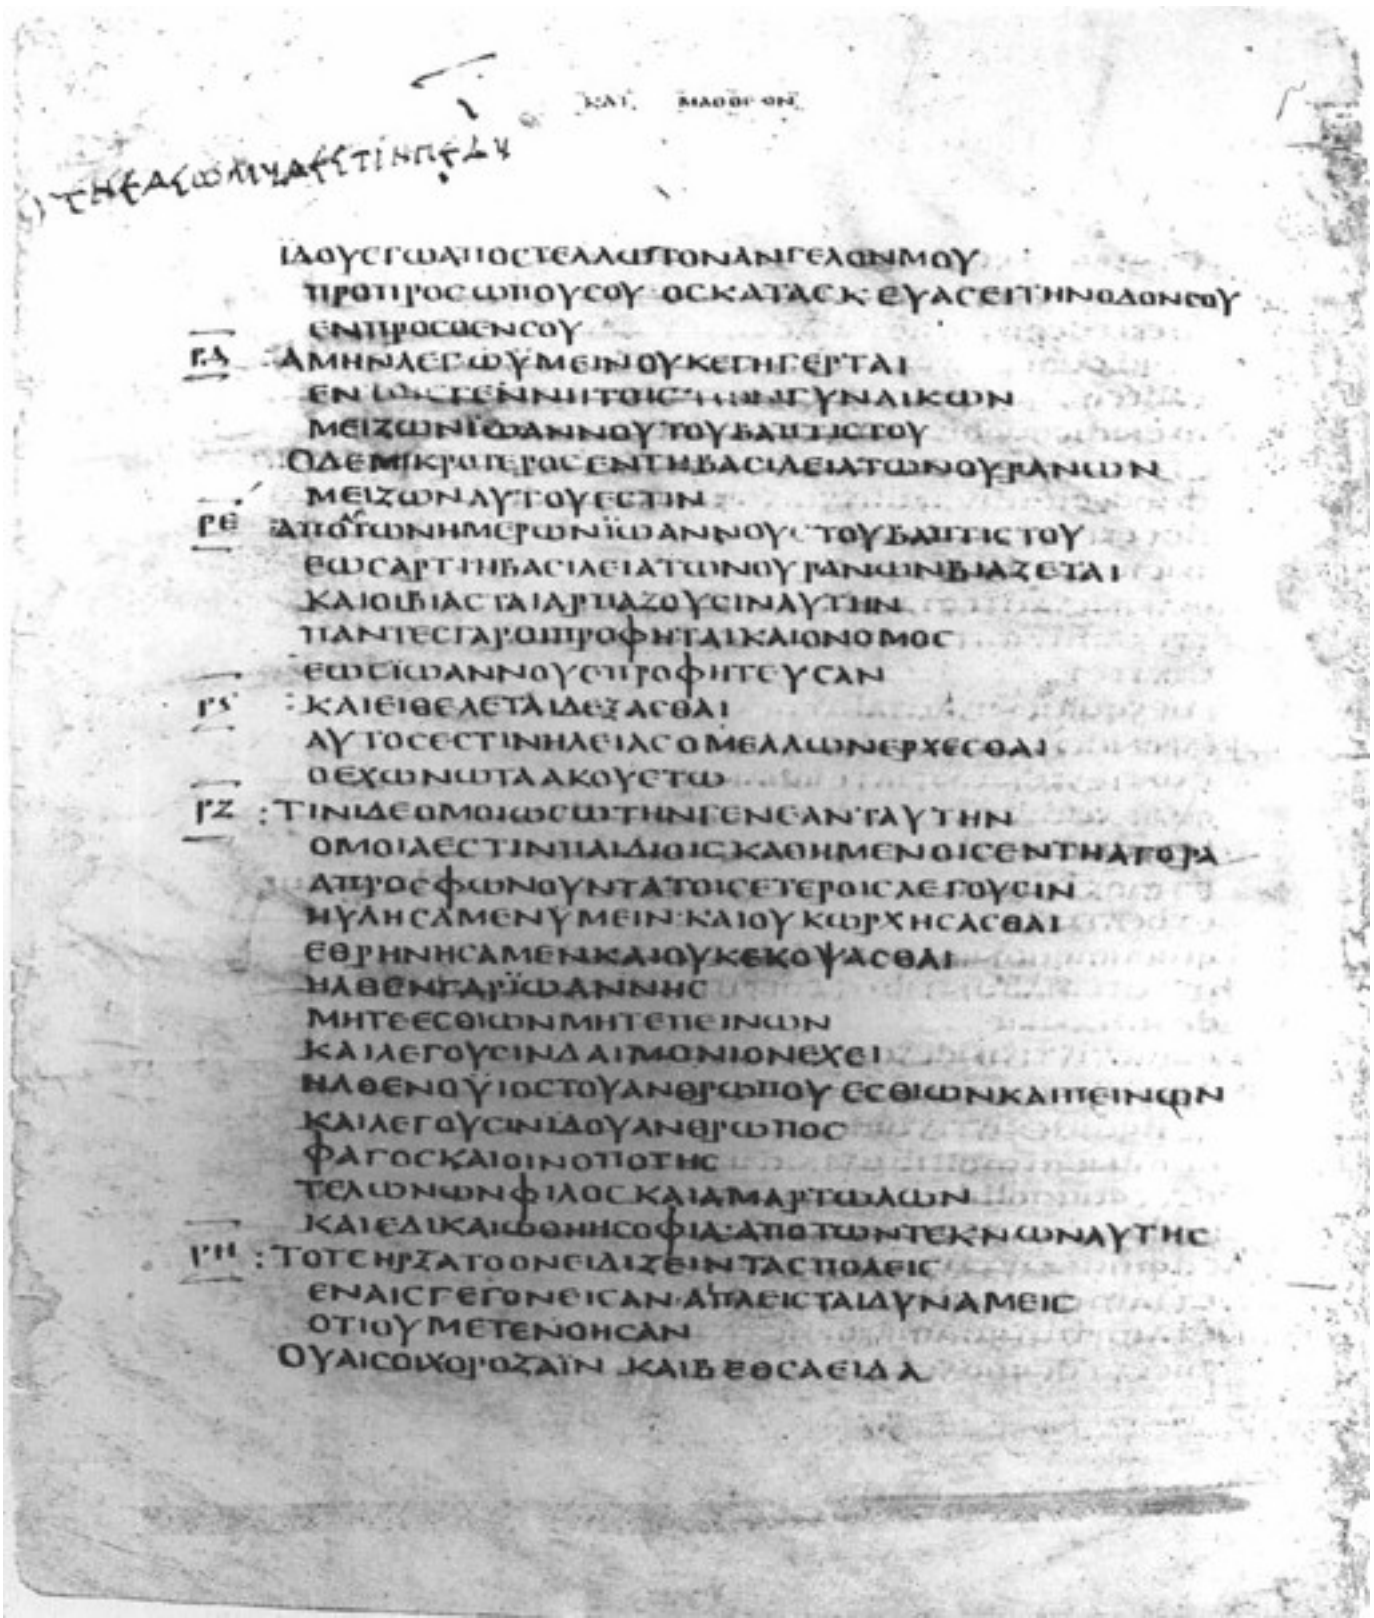 ΚΑΤ ΜΑΘΘΕΟΝ
ΙΔΟΥΕΓΩΑΠΟΣΤΕΛΛΩΤΟΝΑΝΓΕΛΟΝΜΟΥ
ΠΡΟΠΡΟΣΩΠΟΥΣΟΥ ΟΣΚΑΤΑΣΚΕΥΑΣΕΙΤΗΝΟΔΟΝΣΟΥ
ΕΝΠΡΟΣΘΕΝΣΟΥ
ΡΔ :ΑΜΗΝΛΕΓΩΫΜΕΙΝΟΥΚΕΓΗΓΕΡΤΑΙ
ΕΝΤΟΙΣΓΕΝΝΗΤΟΙΣΤΩΝΓΥΝΑΙΚΩΝ
ΜΕΙΖΩΝΪΩΑΝΝΟΥΤΟΥΒΑΠΤΙΣΤΟΥ
ΟΔΕΜΙΚΡΟΤΕΡΟΣΕΝΤΗΒΑΣΙΛΕΙΑΤΩΝΟΥΡΑΝΩΝ
ΜΕΙΖΩΝΑΥΤΟΥΕΣΤΙΝ
ΡΕ :ΑΠΟΤΩΝΗΜΕΡΩΝΪΩΑΝΝΟΥΣΤΟΥΒΑΠΤΙΣΤΟΥ
ΕΩΣΑΡΤΙΗΒΑΣΙΛΕΙΑΤΩΝΟΥΡΑΝΩΝΒΙΑΖΕΤΑΙ
ΚΑΙΟΙΒΙΑΣΤΑΙΑΡΠΑΖΟΥΣΙΝΑΥΤΗΝ
ΠΑΝΤΕΣΓΑΡΟΙΠΡΟΦΗΤΑΙΚΑΙΟΝΟΜΟΣ
ΕΩΣΪΩΑΝΝΟΥΕΠΡΟΦΗΤΕΥΣΑΝ
ΡϚ :ΚΑΙΕΙΘΕΛΕΤΑΙΔΕΞΑΣΘΑΙ
ΑΥΤΟΣΕΣΤΙΝΗΛΕΙΑΣΟΜΕΛΛΩΝΕΡΧΕΣΘΑΙ
ΟΕΧΩΝΩΤΑΑΚΟΥΣΤΩ
ΡΖ :ΤΙΝΙΔΕΟΜΟΙΩΣΩΤΗΝΓΕΝΕΑΝΤΑΥΤΗΝ
ΟΜΟΙΑΕΣΤΙΝΠΑΙΔΙΟΙΣΚΑΘΗΜΕΝΟΙΣΕΝΤΗΑΓΟΡΑ
ΑΠΡΟΣΦΩΝΟΥΝΤΑΤΟΙΣΕΤΕΡΟΙΣΛΕΓΟΥΣΙΝ
ΗΥΛΗΣΑΜΕΝΫΜΕΙΝ·ΚΑΙΟΥΚΩΡΧΗΣΑΣΘΑΙ
ΕΘΡΗΝΗΣΑΜΕΝΚΑΙΟΥΚΕΚΟΨΑΣΘΑΙ
ΗΛΘΕΝΓΑΡΪΩΑΝΝΗΣ
ΜΗΤΕΕΣΘΙΩΝΜΗΤΕΠΕΙΝΩΝ
ΚΑΙΛΕΓΟΥΣΙΝΔΑΙΜΟΝΙΟΝΕΧΕΙ
ΗΛΘΕΝΟΥΙΟΣΤΟΥΑΝΘΡΩΠΟΥ ΕΣΘΙΩΝΚΑΙΠΕΙΝΩΝ
ΚΑΙΛΕΓΟΥΣΙΝΙΔΟΥΑΝΘΡΩΠΟΣ
ΦΑΓΟΣΚΑΙΟΙΝΟΠΟΤΗΣ
ΤΕΛΩΝΩΝΦΙΛΟΣΚΑΙΑΜΑΡΤΩΛΩΝ
ΚΑΙΕΔΙΚΑΙΩΘΗΗΣΟΦΙΑ·ΑΠΟΤΩΝΤΕΚΝΩΝΑΥΤΗΣ
ΡΗ :ΤΟΤΕΗΡΞΑΤΟΟΝΕΙΔΙΖΕΙΝΤΑΣΠΟΛΕΙΣ
ΕΝΑΙΣΓΕΓΟΝΕΙΣΑΝ·ΑΙΠΛΕΙΣΤΑΙΔΥΝΑΜΕΙΣ
ΟΤΙΟΥΜΕΤΕΝΟΗΣΑΝ
ΟΥΑΙΣΟΙΧΟΡΟΖΑΪΝ ΚΑΙΒΕΘΣΑΕΙΔΑ